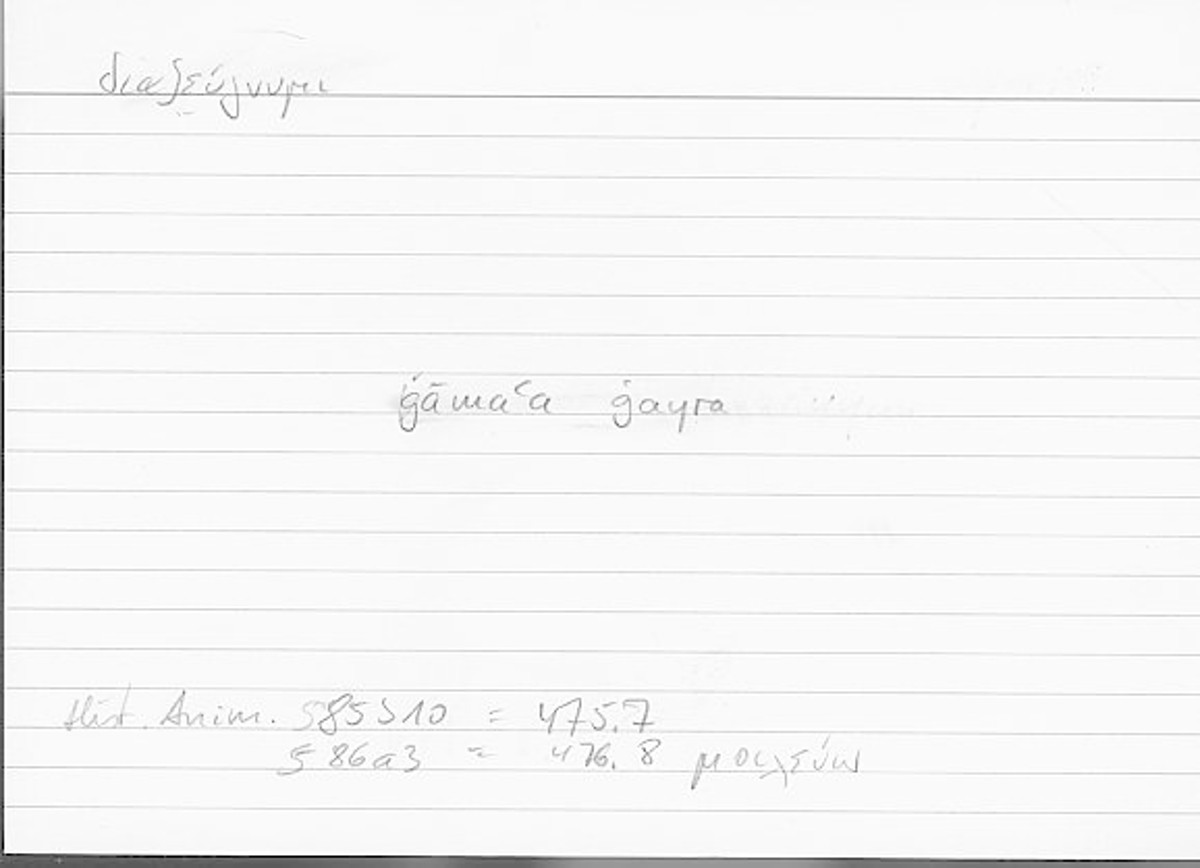 διαζεύγνυμι
ǧāmaʿa ġayra
Hist. Anim. 585b10 = 475.7
586a3 = 476.8 μοιχεύω